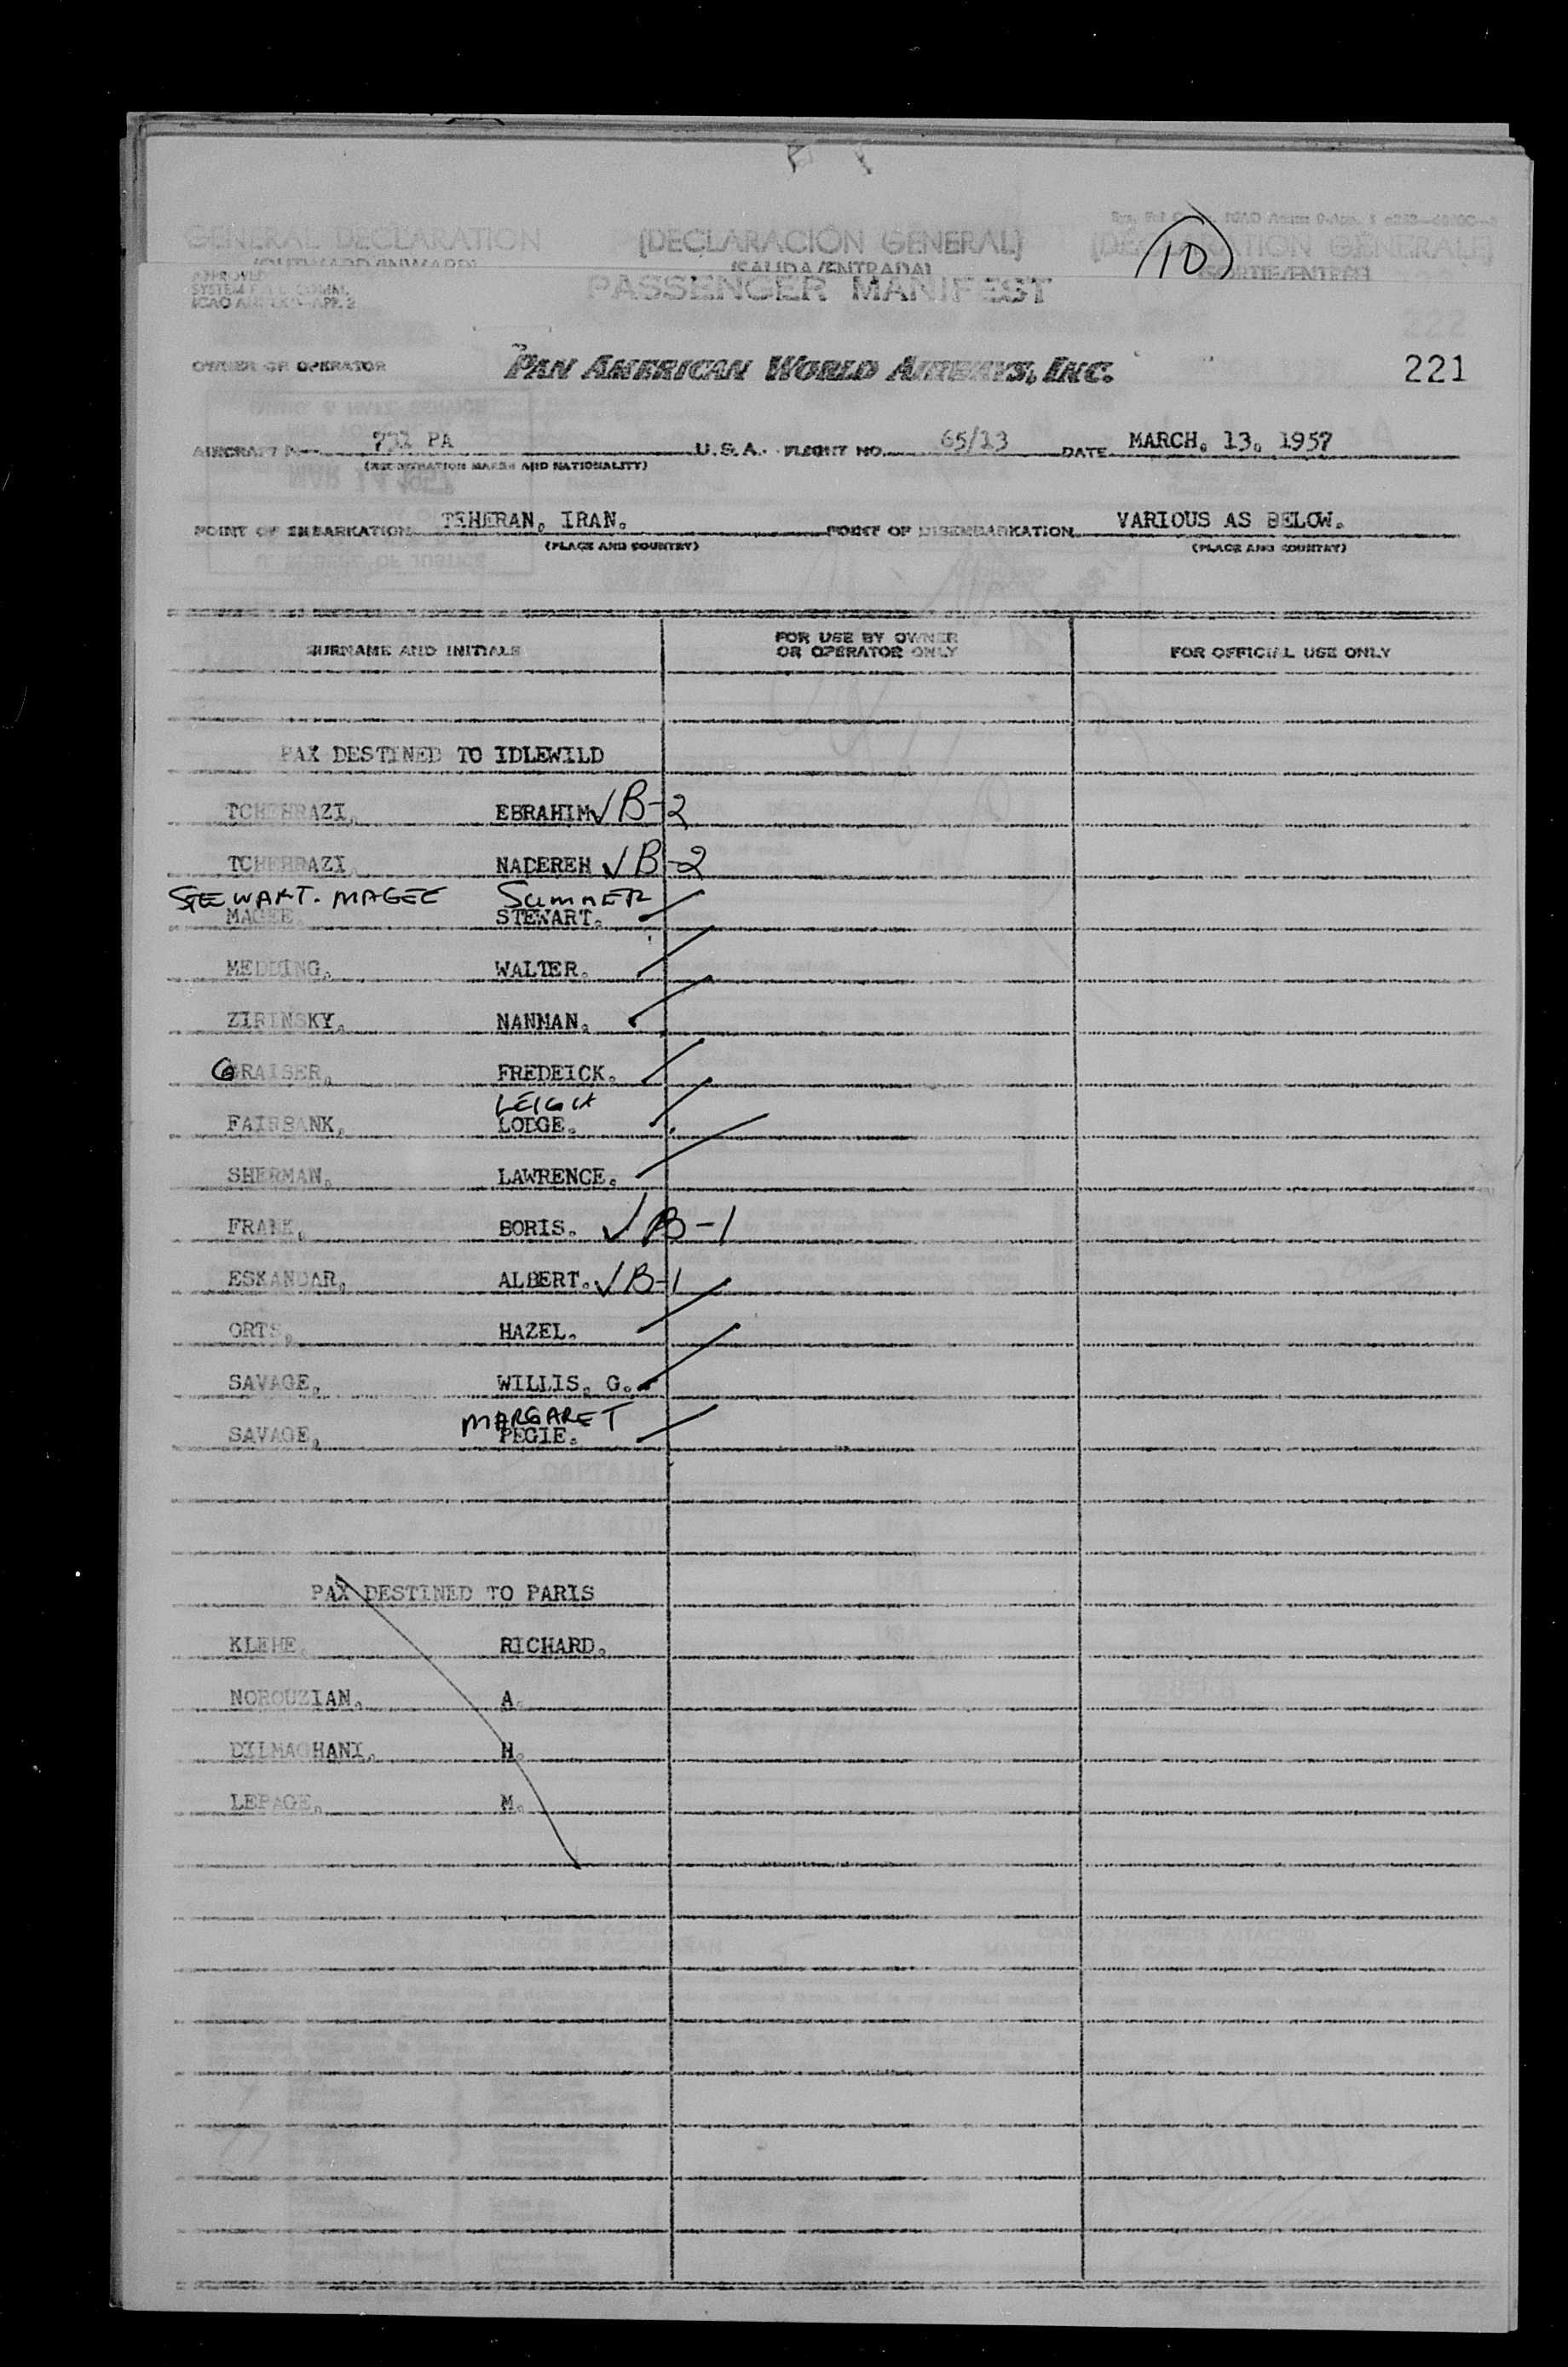 GENERAL DECLARATION [DECLARACION GENERAL] [DECLARATION GENERALE]
(OUTWARD/INWARD) (SALIDA/ENTRADA) (SORTIE/ENTREE)
10
APPROVED
PASSENGER MANIFEST
OWNER OR OPERATOR PAN AMERICAN WORLD AIRWAYS, INC. 221
AIRCRAFT PA U.S.A. FLIGHT NO. 65/13 DATE MARCH. 13. 1957
(REGISTRATION MARKS AND NATIONALITY)
POINT OF EMBARKATION TEHERAN, IRAN. POINT OF DISEMBARKATION VARIOUS AS BELOW.
(PLACE AND COUNTRY) (PLACE AND COUNTRY)
SURNAME AND INITIALS FOR USE BY OWNER OR OPERATOR ONLY FOR OFFICIAL USE ONLY
PAX DESTINED TO IDLEWILD
TCHEHRAZI, EBRAHIM ✓ B-2
TCHEHRAZI NADEREH ✓ B-2
STEWART. MAGEE SUMNER
MAGEE, STEWART.
MEDDING, WALTER.
ZIRINSKY, NANMAN.
GRAISER, FREDEICK.
LEIGH
FAIRBANK, LODGE.
SHERMAN, LAWRENCE.
FRANK, BORIS. ✓ B-1
ESKANDAR, ALBERT. ✓ B-1
ORTS, HAZEL.
SAVAGE, WILLIS. G.
MARGARET
SAVAGE, PEGIE.
PAX DESTINED TO PARIS
KLEHE, RICHARD.
NOROUZIAN. A.
DILMAGHANI. H.
LEPAGE. M.